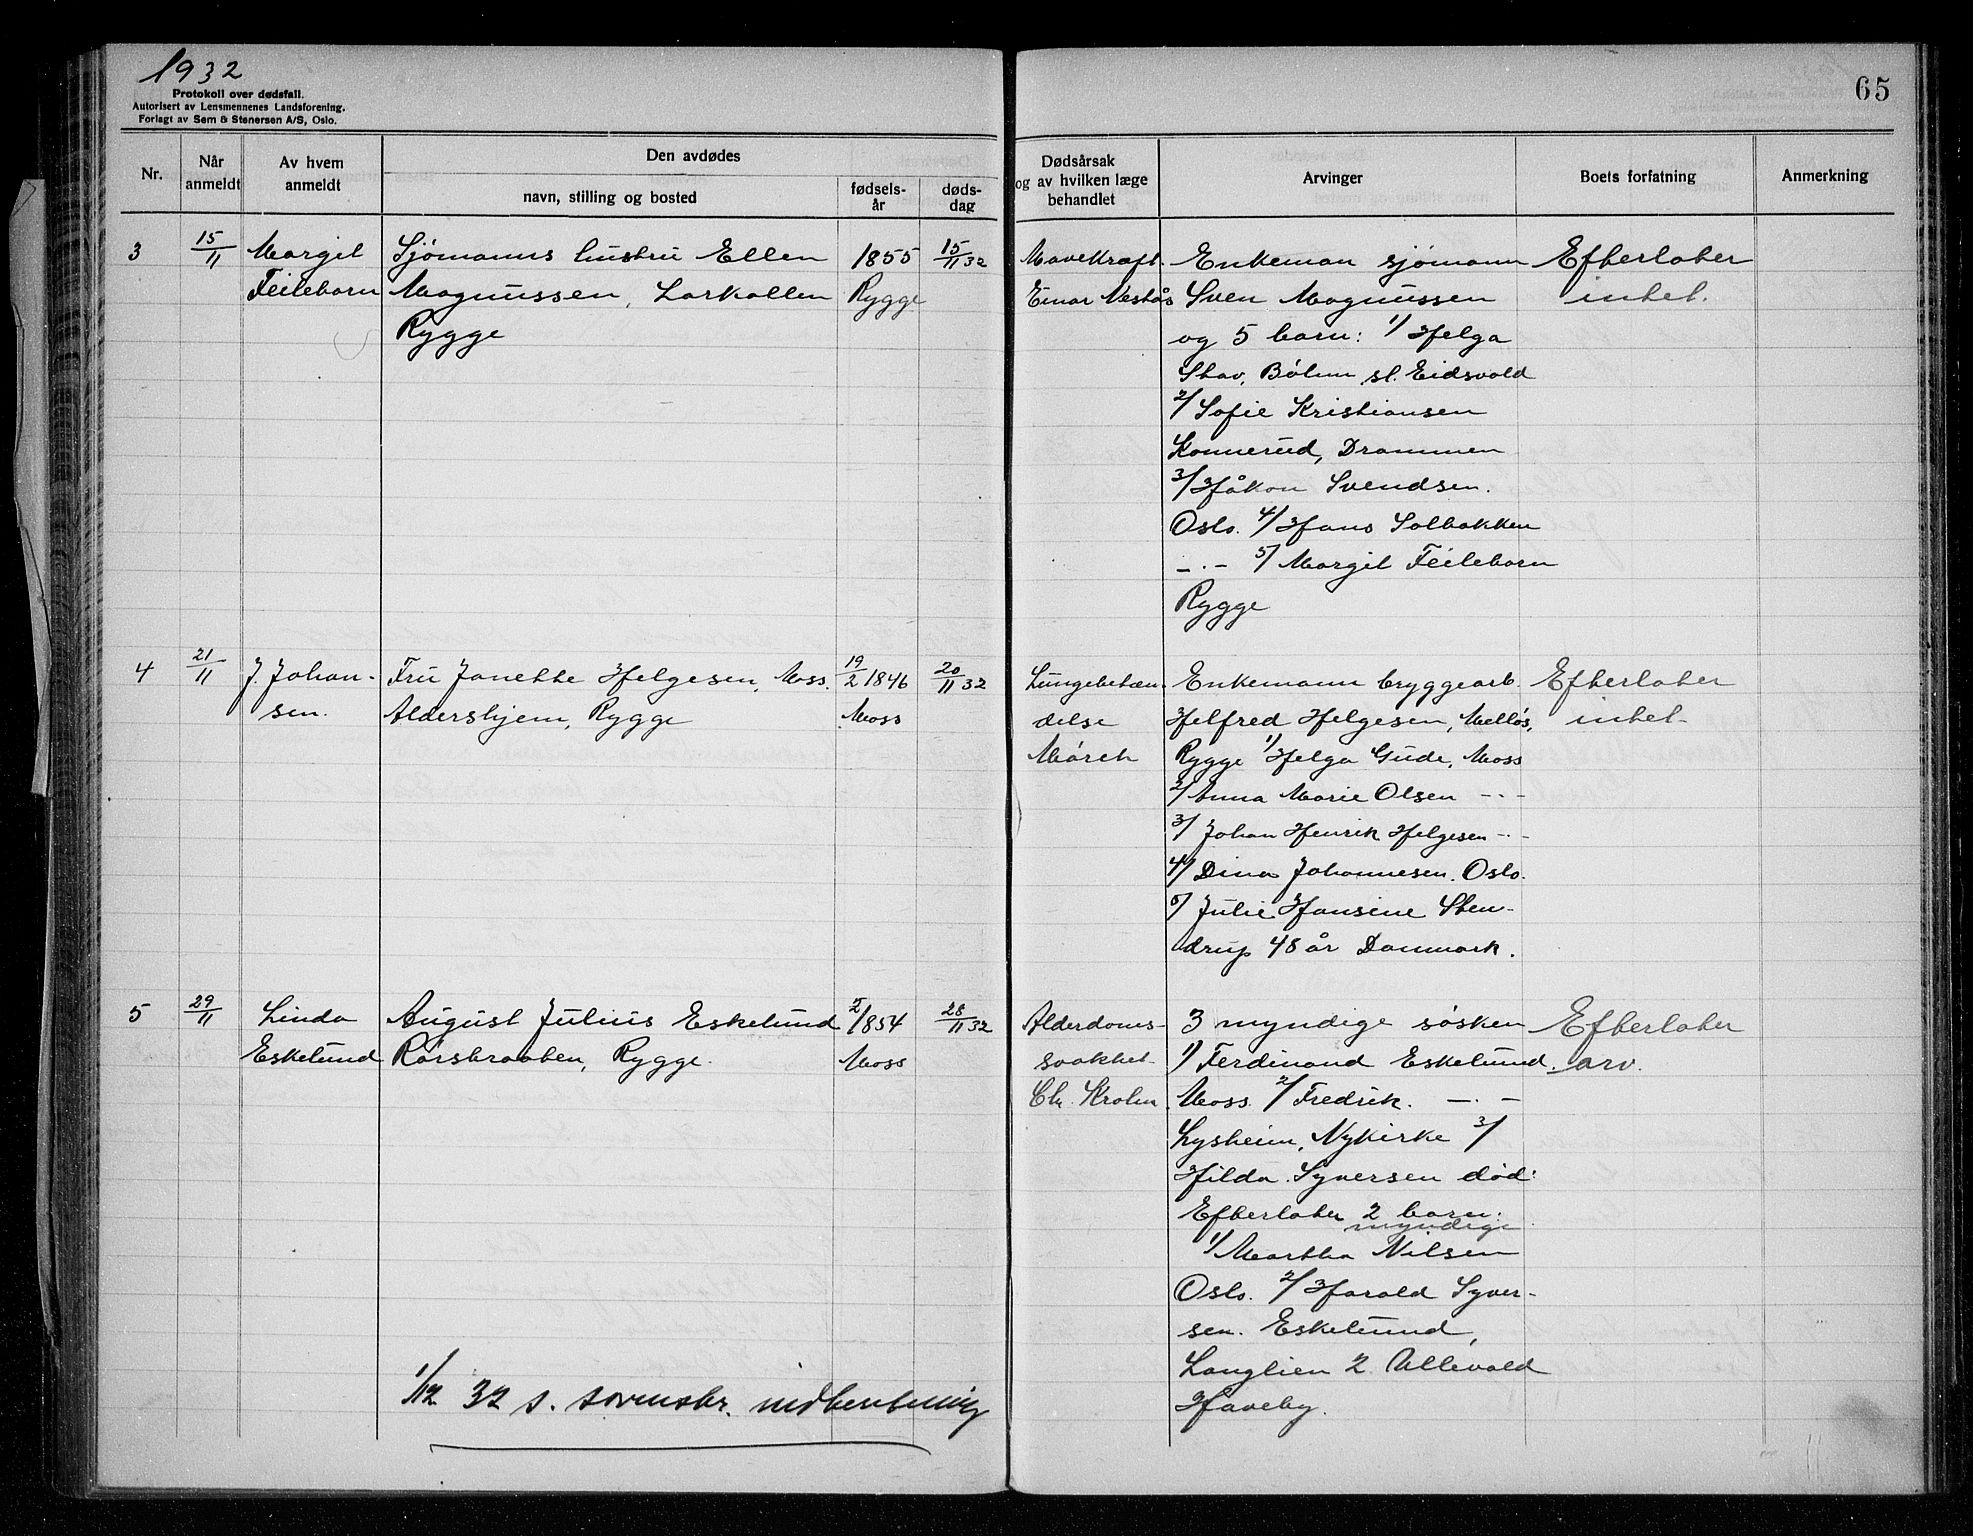 1932
Protokoll over dødsfall.
Autorisert av Lensmennenes Landsforening.
Forlagt av Sem & Stenersen A/S, Oslo.
65
Nr.
Når anmeldt
Av hvem anmeldt
Den avdødes
navn, stilling og bosted
fødsels-år
døds-dag
Dødsårsak og av hvilken læge behandlet
Arvinger
Boets forfatning
Anmerkning
3
15/11
Margit
Feileborn
Sjømanns hustru Ellen
Magnussen, Larkollen
Rygge
1855
Rygge
15/11 32
Mavekræft.
Einar Nestås
Enkeman sjømann
Sven Magnussen
og 5 barn: 1/ Helga
Stav, Bøhn st. Eidsvold
2/ Sofie Kristiansen
Konnerud, Drammen
3/ Håkon Svendsen.
Oslo. 4/ Hans Solbakken
-.- 5/ Margit Feileborn
Rygge
Efterlater
intet.
4
21/11
J. Johan-
sen.
Fru Janette Helgesen, Moss.
Aldershjem, Rygge
19/2 1846
Moss
20/11 32
Lungebetæn-
delse
Mörch
Enkemann bryggearb.
Helfred Helgesen, Melløs,
Rygge 1/ Helga Gude, Moss
2/ Anna Marie Olsen -.-
3/ Johan Henrik Helgesen -.-
4/ Dina Johannesen. Oslo.
5/ Julie Hansine Sten-
drup 48 år Danmark.
Efterlater
intet.
5
29/11
Linda
Eskelund
August Julius Eskelund
Rørsbraaten, Rygge.
1854
Moss
28/11 32
Alderdoms-
svakhet.
Chr. Krohn.
3 myndige søsken
1/ Ferdinand Eskelund.
Moss. 2/ Fredrik. -.-
Lysheim, Nykirke 3/
Hilda Syversen død:
Efterlater 2 barn:
myndige
1/ Martha Nilsen
Oslo. 2/ Harald Syver-
sen. Eskelund,
Langlien 2. Ullevold
Haveby.
Efterlater
arv.
1/12 32 s. sorenskr. indberetning